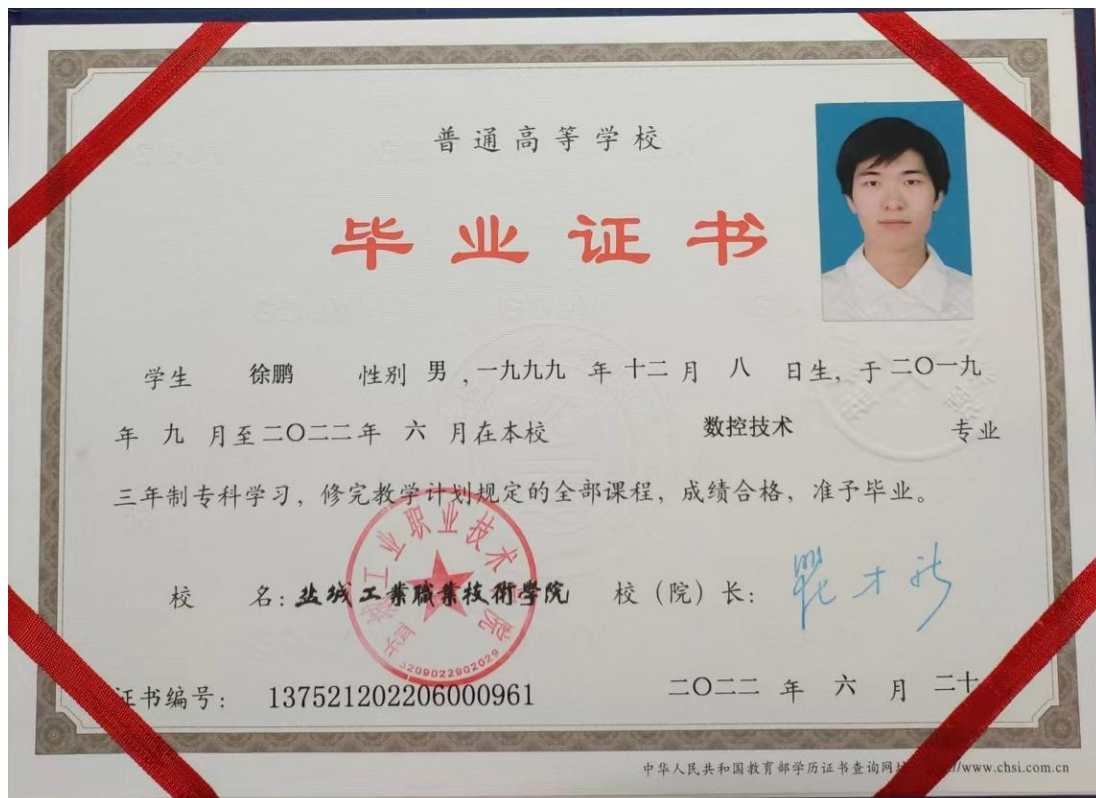 普通高等学校
毕业证书
学生 徐鹏 性别 男，一九九九 年 十二 月 八 日生，于 二〇一九
年 九 月至 二〇二二 年 六 月在本校 数控技术 专业
三年制专科学习，修完教学计划规定的全部课程，成绩合格，准予毕业。
校 名：盐城工業職業技術學院 校（院）长：瞿才新
盐城工业职业技术学院
3209022902029
证书编号：137521202206000961 二〇二二 年 六 月 二十
中华人民共和国教育部学历证书查询网址 //www.chsi.com.cn